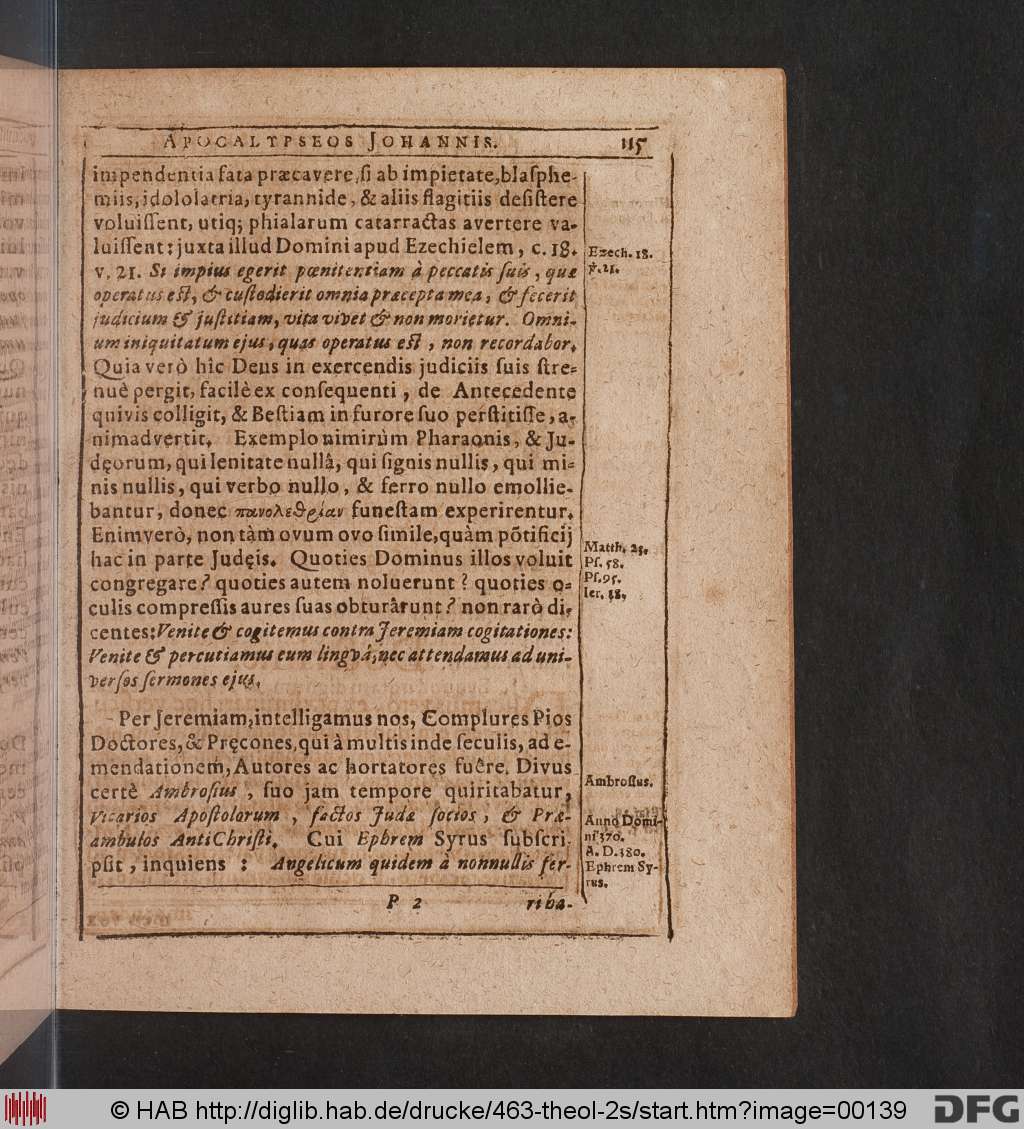 APOCALYPSEOS JOHANNIS. 115
impendentia fata præcavere, ſi ab impietate, blaſphe-
miis, idololatria, tyrannide, & aliis flagitiis deſiſtere
voluiſſent, utiq; phialarum catarractas avertere va-
luiſſent: juxta illud Domini apud Ezechielem, c. 18.
v. 21. Si impius egerit pœnitentiam à peccatis ſuis, quæ
operatus eſt, & cuſtodierit omnia præcepta mea, & fecerit
judicium & juſtitiam, vita vivet & non morietur. Omni-
um iniquitatum ejus, quas operatus eſt, non recordabor.
Quia verò hîc Deus in exercendis judiciis ſuis ſtre-
nuè pergit, facilè ex conſequenti, de Antecedente
quivis colligit, & Beſtiam in furore ſuo perſtitiſſe, a-
nimadvertit. Exemplo nimirùm Pharaonis, & Ju-
dęorum, qui lenitate nullâ, qui ſignis nullis, qui mi-
nis nullis, qui verbo nullo, & ferro nullo emollie-
bantur, donec πανολεθρίαν funeſtam experirentur.
Enimverò, non tàm ovum ovo ſimile, quàm põtificij
hac in parte Judęis. Quoties Dominus illos voluit
congregare? quoties autem noluerunt? quoties o-
culis compreſſis aures ſuas obturârunt? non rarò di-
centes: Venite & cogitemus contra Jeremiam cogitationes:
Venite & percutiamus eum linguâ, nec attendamus ad uni-
verſos ſermones ejus.
Per Jeremiam, intelligamus nos, Complures Pios
Doctores, & Pręcones, qui à multis inde ſeculis, ad e-
mendationem, Autores ac hortatores fuêre. Divus
certè Ambroſius, ſuo jam tempore quiritabatur,
Vicarios Apoſtolorum, factos Judæ ſocios, & Præ-
ambulos AntiChriſti. Cui Ephrem Syrus ſubſcri-
pſit, inquiens: Angelicum quidem à nonnullis fer-
P 2 riba-
Ezech. 18.
v. 21.
Matth. 23.
Pſ. 58.
Pſ. 95.
Ier. 18.
Ambroſius.
Anno Domi-
ni 370.
A. D. 380.
Ephrem Sy-
rus.
© HAB http://diglib.hab.de/drucke/463-theol-2s/start.htm?image=00139
DFG